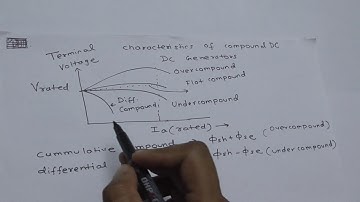 Terminal Voltage
characteristics of compound DC
DC Generators
Overcompound
Flat compound
Vrated
Diff. Compound
Undercompound
Ia (rated) →
Cummulative compound → Φsh + Φse (Overcompound)
differential Φsh - Φse (under compound)